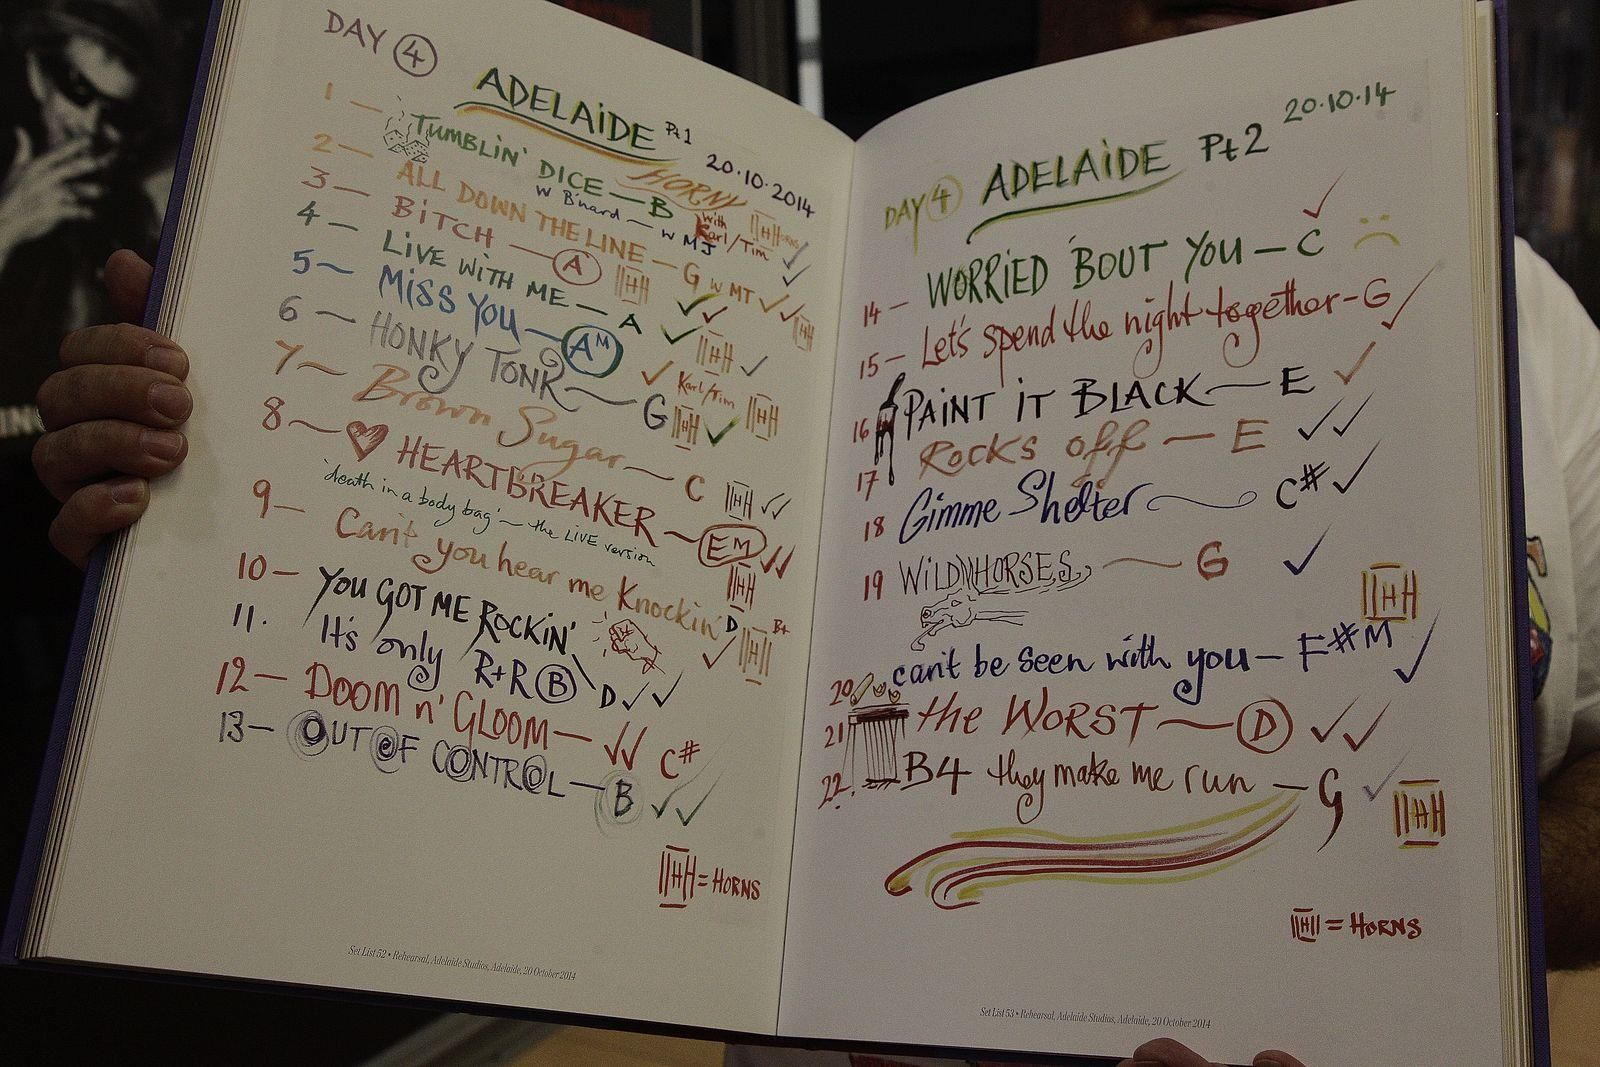 DAY 4
ADELAiDE Pt1
20·10·2014
1 — TUMBLIN' DICE — B
HORNY
w B'nard — w MJ
with Karl/Tim
HORNS
2 — ALL DOWN THE LINE — G w MT
3 — BiTCH — A
4 — LiVE WiTH ME — A
5 ~ MiSS YOU — AM
6 ~ HONKY TONK — G
Karl/Tim
7 ~ Brown Sugar — C
8 ~ HEARTBREAKER — EM
'death in a body bag' ~ the LIVE version
9 — Can't you hear me Knockin' D
B+
10 — YOU GOT ME ROCKiN' D
11. It's only R+R B
12 — DOOM n' GLOOM — C#
13 — OUT OF CONTROL — B
H = HORNS
Set List 52 • Rehearsal, Adelaide Studios, Adelaide, 20 October 2014
DAY 4 ADELAiDE Pt2
20·10·14
14 — WORRiED 'BOUT YOU — C
15 — Let's spend the night together — G
16 PAiNT iT BLACK — E
17 Rocks off — E
18 Gimme Shelter C#
19 WiLD HORSES — G
20 can't be seen with you — F#M
21 the WORST — D
22. B4 they make me run — G
H = HORNS
Set List 53 • Rehearsal, Adelaide Studios, Adelaide, 20 October 2014